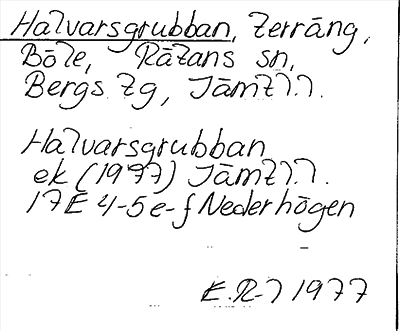 Halvarsgrubban, terräng,
Böle, Rätans sn,
Bergs tg, Jämtl.l.
Halvarsgrubban
ek (1977) Jämtl.l.
17E 4-5e-f Nederhögen
E.R-l 1977